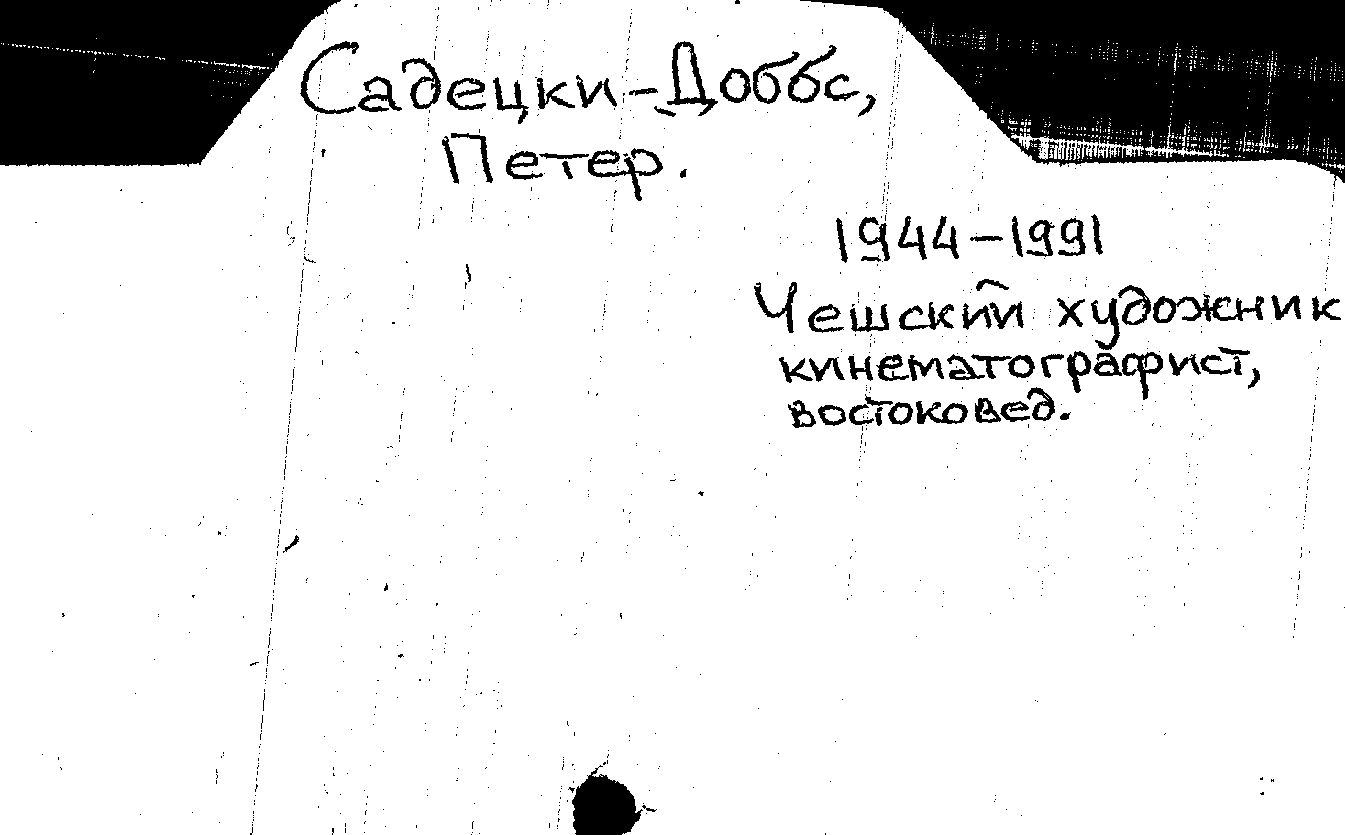 Садецки-Доббс,
Петер.
1944-1991
Чешский художник
кинематографист,
востоковед.